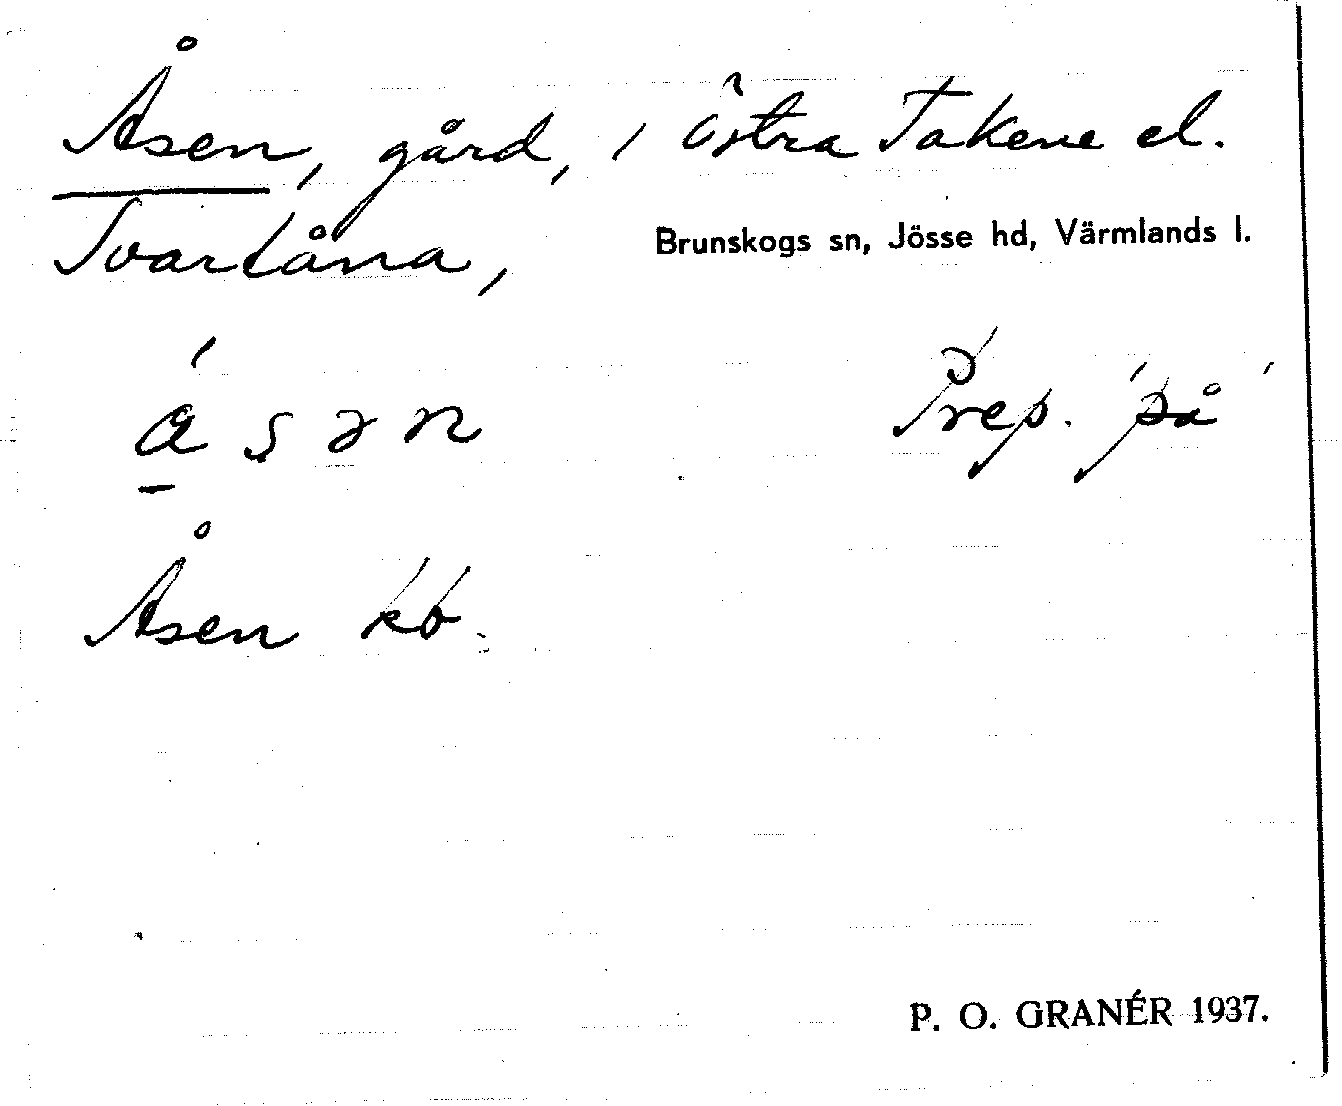 Åsen, gård, i Östra Takene el.
Tvartåna, Brunskogs sn, Jösse hd, Värmlands l.
Prep. 'på'
Åsen kb.
P. O. GRANÉR 1937.